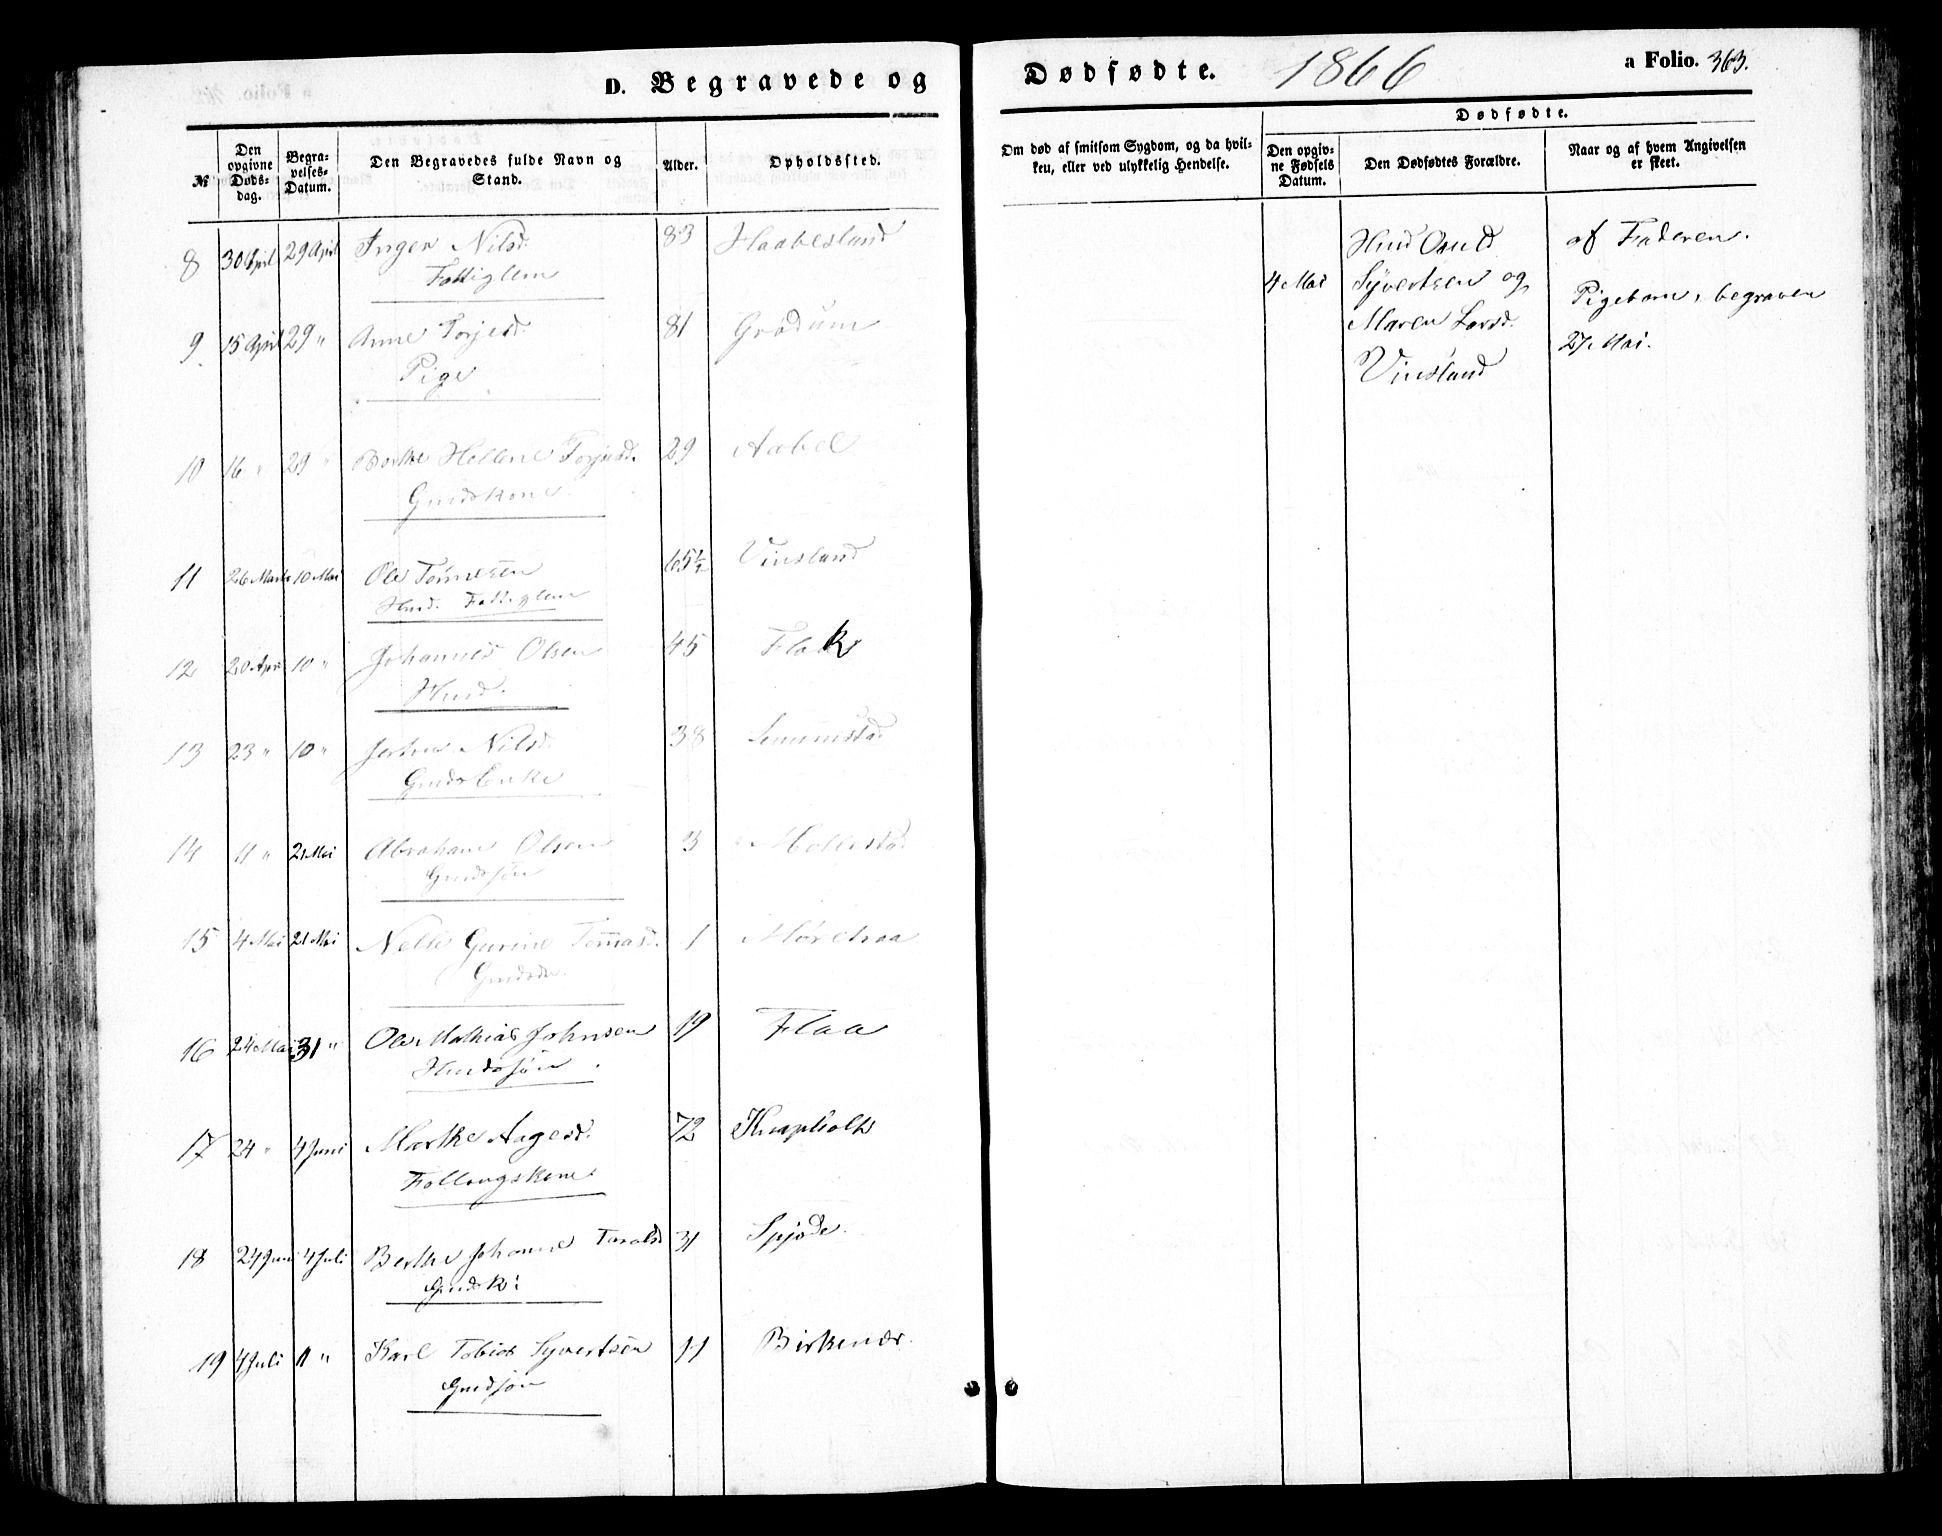 D. Begravede og Dødfødte. 1866 a Folio. 363.
№ Den opgivne Døds-dag. Begra-velses-Datum. Den Begravedes fulde Navn og Stand. Alder. Opholdssted. Om død af smitsom Sygdom, og da hvil-ken, eller ved ulykkelig Hendelse. Dødfødte. Den opgiv-ne Fødsels Datum. Den Dødfødtes Forældre. Naar og af hvem Angivelsen er skeet.
8 30 April 29 April Inger Nilsd. 83 Haabesland
Fattiglem
9 15 April 29 " Anne Torjesd. 81 Grødum
Pige
10 16 " 29 " Berthe Hellene Torjusd. 29 Aabel
Gmdskone
11 26 Marts 10 Mai Ole Tönnesen 65½ Vinsland
Hmd. Fattiglem
12 20 Apr 10 " Johannes Olsen 45 Flak
Hmd.
13 23 " 10 " Nilsd. 38
Gmds Enke
14 11 " 21 Mai Abraham Olsen 3 Mollestad
Gmdssön
15 4 Mai 21 Mai Nelle Gurine Tomasd. 1
Gmdsd.
16 24 Mai 31 " Ole Mathias Johnsen 19 Flaa
Hmdssön
17 24 " 4 Juni Marthe Aagesd. 72 Knapholt
Follougskone
18 24 Juni 4 Juli Berthe Johanne Taralsd 31 Spjøde.
Gmdsk:
19 4 Juli 11 " Karl Tobias Syvertsen 11 Birkenær.
Gmdsjön
4 Mai
Hmd Osuld
Syvertsen og
Maren Larsd.
Vinsland
af Faderen.
Pigebarn, begraven
27 Mai.